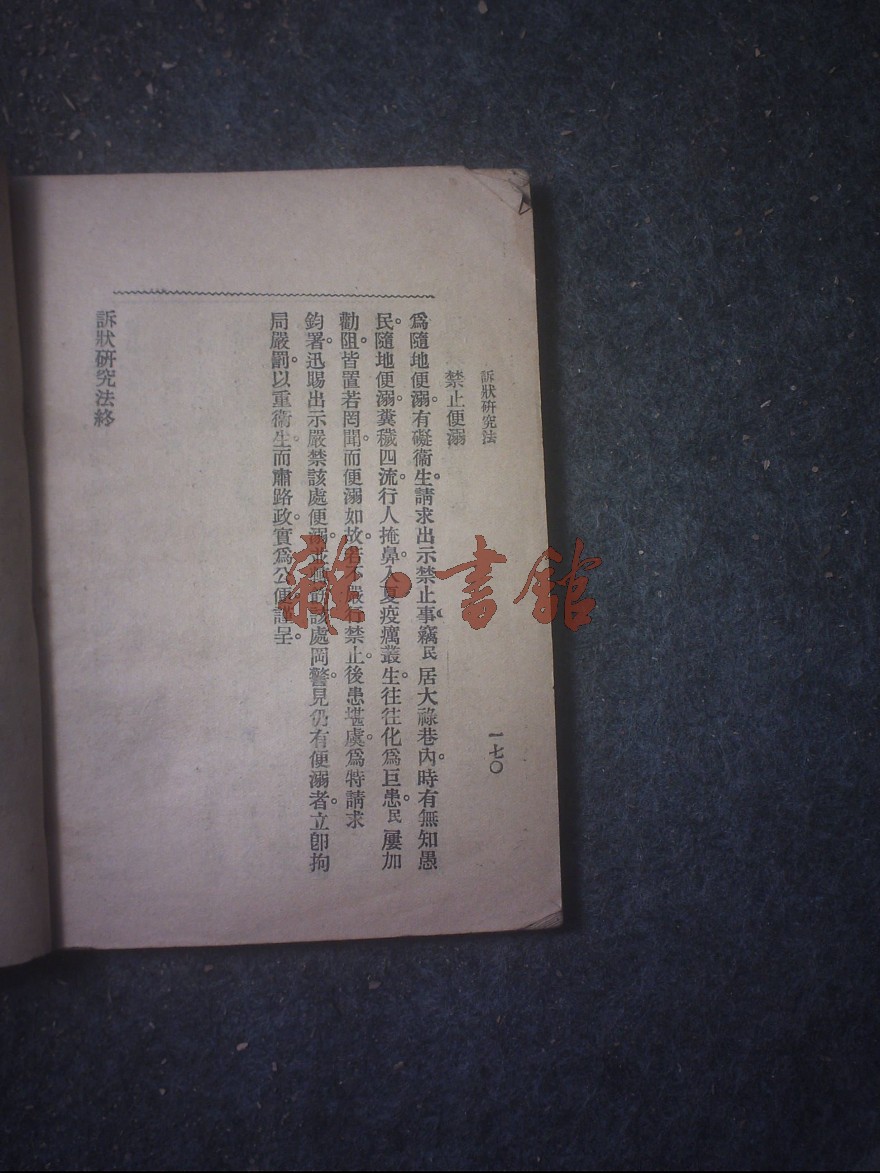 訴狀研究法
一七〇
禁止便溺
爲隨地便溺。有礙衞生。請求出示禁止事。竊民居大祿巷內。時有無知愚
民。隨地便溺。糞穢四流。行人掩鼻。入夏疫癘叢生。往往化爲巨患。民屢加
勸阻。皆置若罔聞。而便溺如故。若不嚴行禁止。後患堪虞。爲特請求
鈞署。迅賜出示嚴禁該處便溺。並 該處岡警。見仍有便溺者。立卽拘
局嚴罰。以重衞生。而肅路政。實爲公便。謹呈。
訴狀研究法終
雜·書館